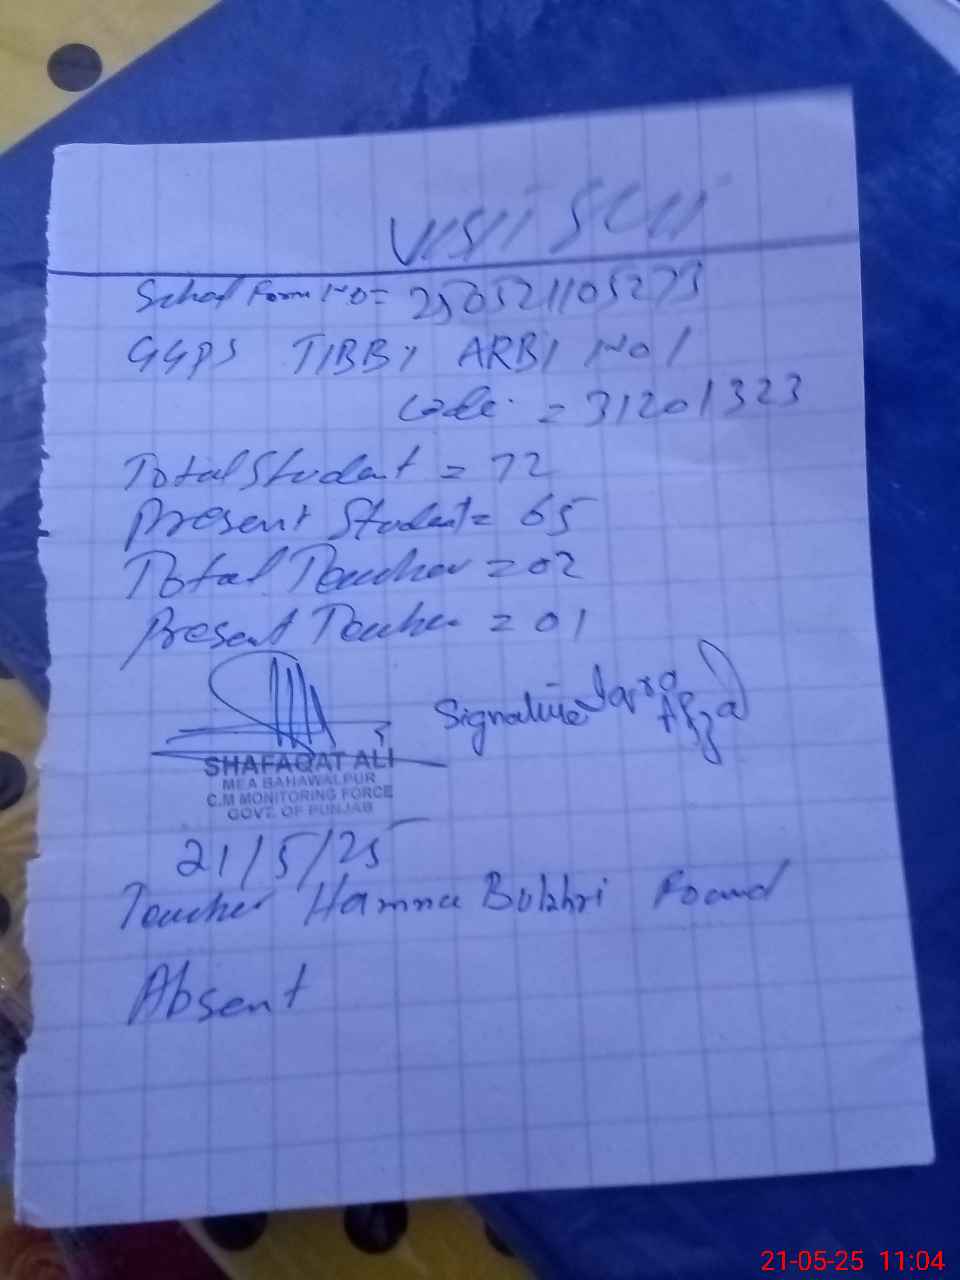 VISIT SCH
School Form No = 250521105273
GGPS TIBBI ARBI No 1
Code = 31201323
Total Student = 72
Present Student = 65
Total Teacher = 02
Present Teacher = 01
Signature Afza
SHAFAQAT ALI
MEA BAHAWALPUR
C.M MONITORING FORCE
GOVT. OF PUNJAB
21/5/25
Teacher Hamna Bukhri Found
Absent
21-05-25 11:04